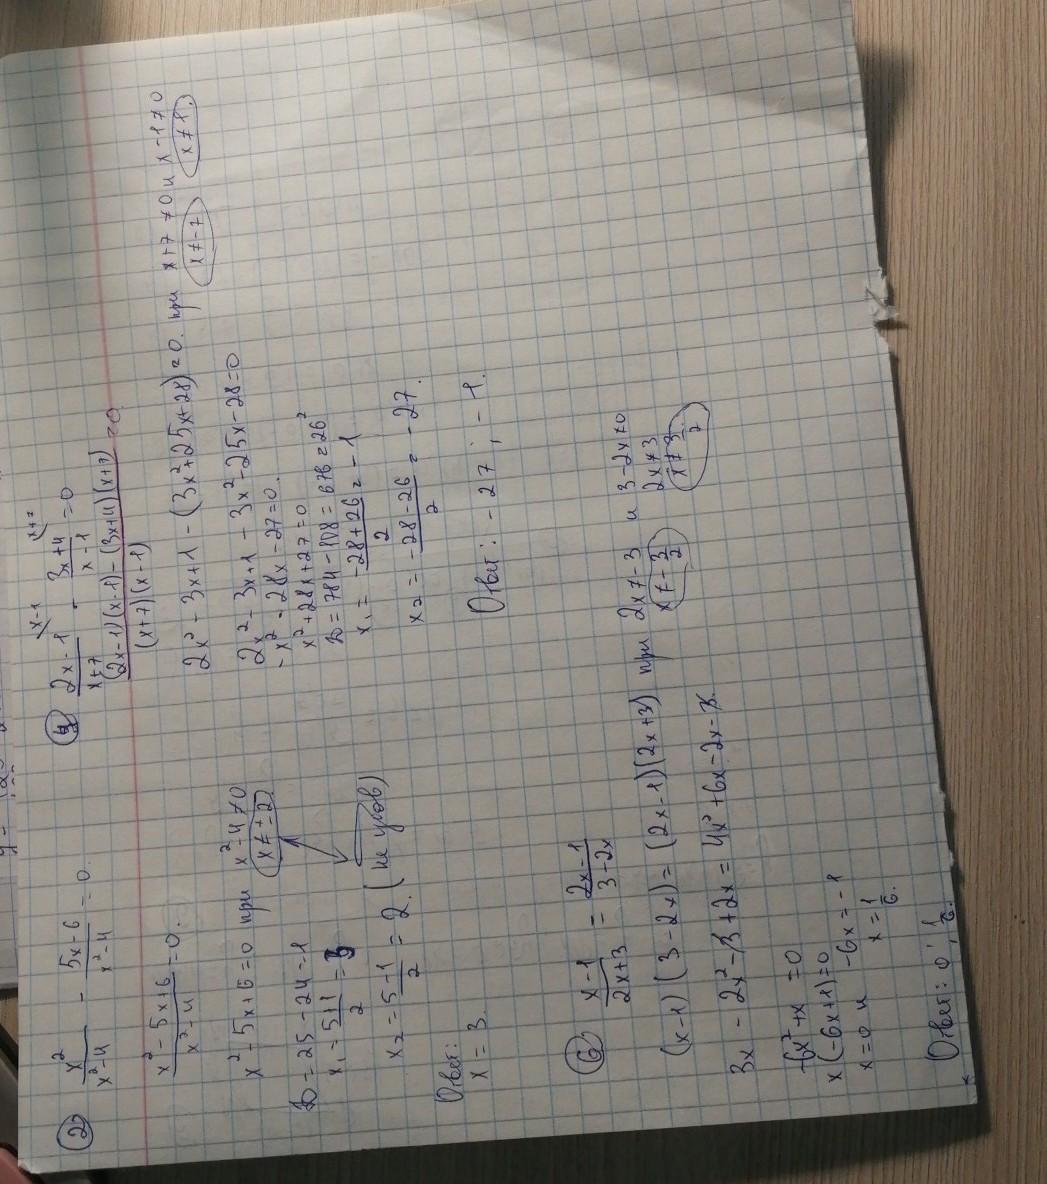 ② x²/(x²-4) - (5x-6)/(x²-4) = 0.
(x²-5x+6)/(x²-4) = 0.
x²-5x+6=0 при x²-4≠0
x≠±2
D=25-24=1
x₁=(5+1)/2=3
x₂=(5-1)/2=2. (не удов)
Ответ:
x=3.
④ (2x-1)/(x+7) - (3x+4)/(x-1) = 0
((2x-1)(x-1)-(3x+4)(x+7))/((x+7)(x-1)) = 0
2x²-3x+1-(3x²+25x+28)=0. при x+7≠0 и x-1≠0
x≠-7 x≠1.
2x²-3x+1-3x²-25x-28=0
-x²-28x-27=0.
x²+28x+27=0
D=784-108=676=26²
x₁=(-28+26)/2=-1
x₂=(-28-26)/2=-27.
Ответ: -27; -1.
⑥ (x-1)/(2x+3) = (2x-1)/(3-2x)
(x-1)(3-2x)=(2x-1)(2x+3) при 2x≠-3 и 3-2x≠0
x≠-3/2 2x≠3
x≠3/2
3x-2x²-3+2x=4x²+6x-2x-3.
-6x²+x=0
x(-6x+1)=0
x=0 и -6x=-1
x=1/6.
Ответ: 0; 1/6.